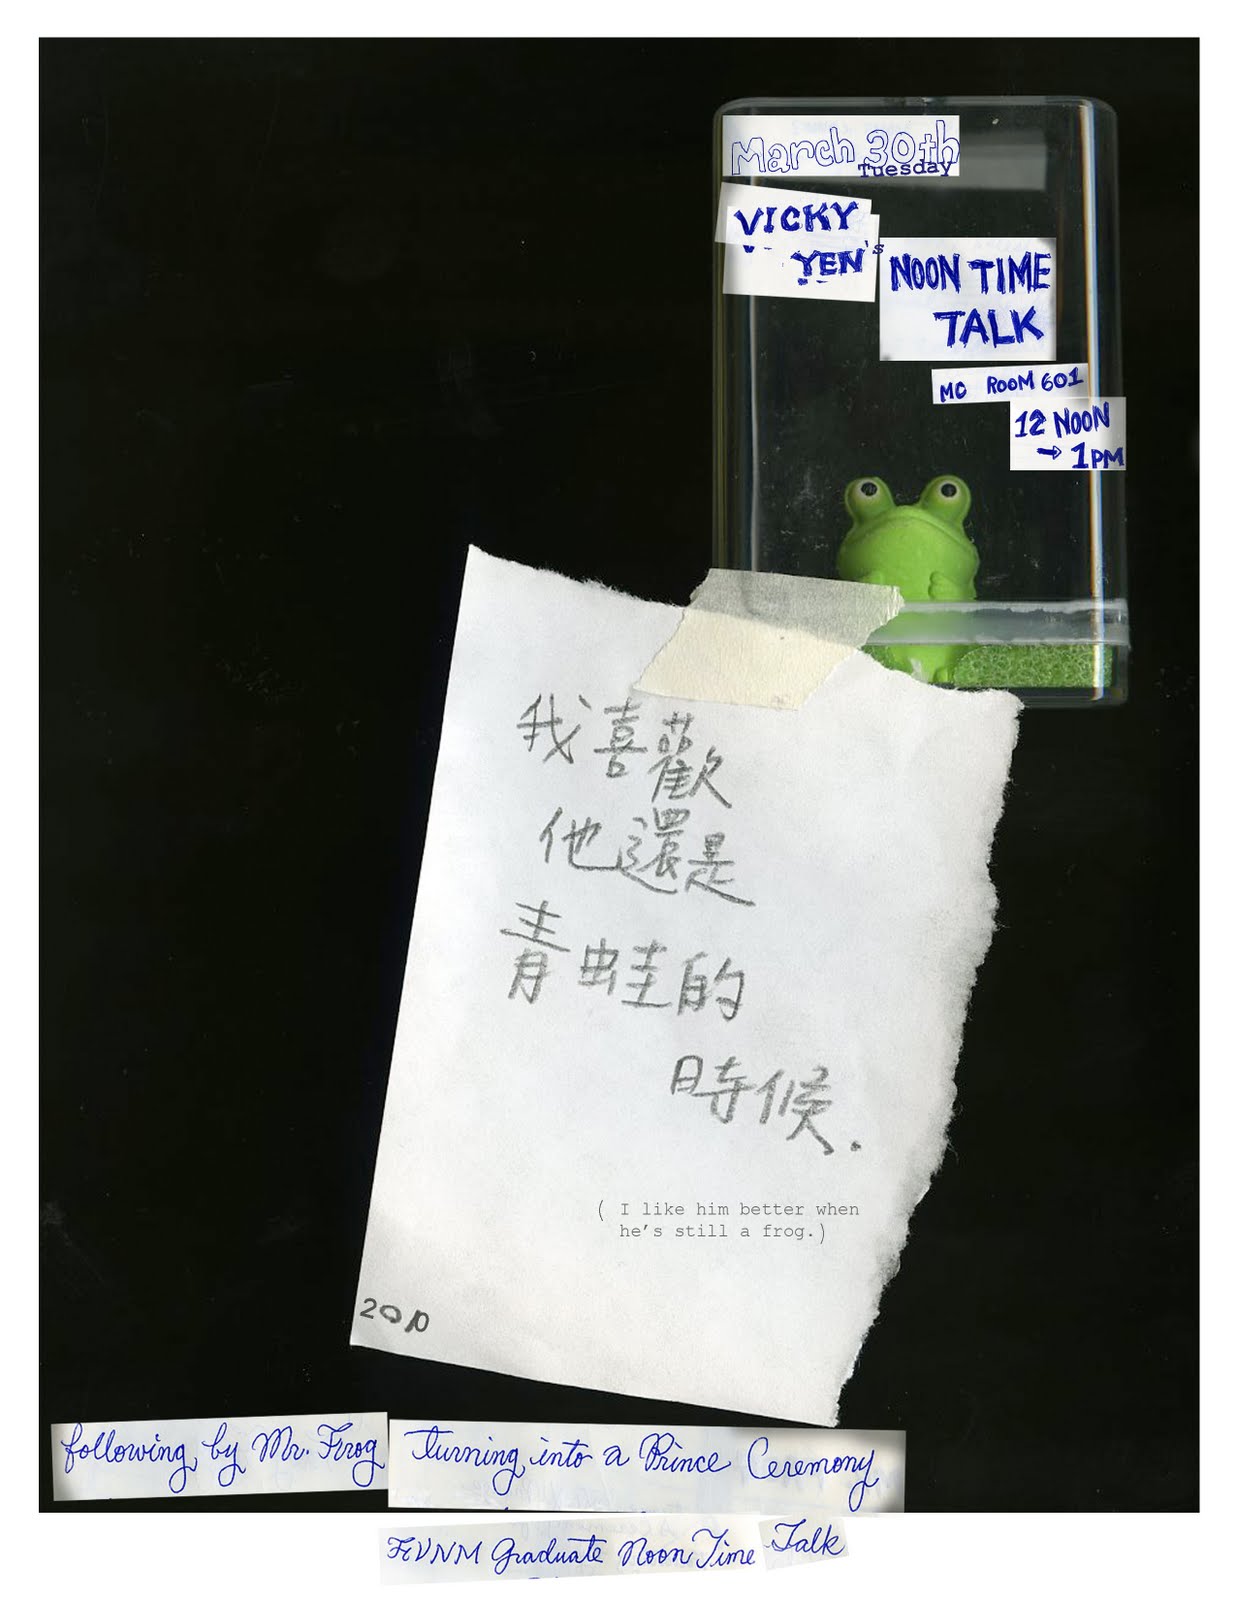 March 30th
Tuesday
VICKY
YEN's
NOON TIME
TALK
MC ROOM 601
12 NOON
→ 1PM
我喜歡
他還是
青蛙的
時候.
( I like him better when
he's still a frog.)
2010
following by Mr. Frog turning into a Prince Ceremony
FVNM Graduate Noon Time Talk